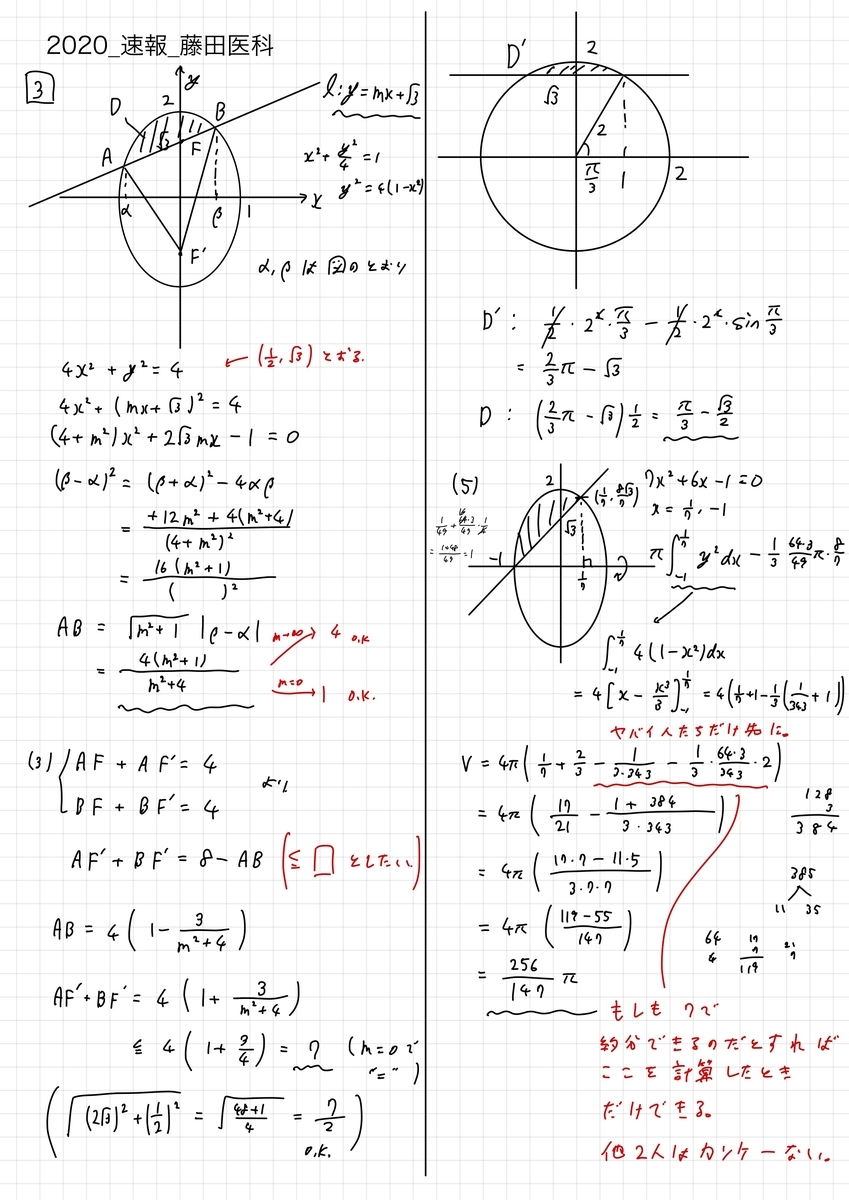 2020_速報_藤田医科
3
D
2
y
B
l: y = mx+√3
√3
F
A
x² + y²/4 = 1
y² = 4(1-x²)
α
β
1
x
F'
α, β は図のとおり
4x² + y² = 4 ← (1/2, √3) とおる.
4x² + (mx+√3)² = 4
(4+m²)x² + 2√3mx - 1 = 0
(β-α)² = (β+α)² - 4αβ
= +12m² + 4(m²+4) / (4+m²)²
= 16(m²+1) / ( )²
AB = √m²+1 |β-α| m→∞ 4 o.k
= 4(m²+1) / m²+4 m=0 1 o.k.
(3) { AF + AF' = 4
BF + BF' = 4 より
AF' + BF' = 8 - AB (≦ □ としたい)
AB = 4(1 - 3/(m²+4))
AF'+BF' = 4(1 + 3/(m²+4))
≦ 4(1 + 3/4) = 7 (m=0で "=" )
(√(2√3)²+(1/2)² = √(48+1)/4 = 7/2) o.k.
D'
2
√3
2
π/3
1
2
D' : 1/2・2²・π/3 - 1/2・2²・sin π/3
= 2/3π - √3
D : (2/3π - √3)1/2 = π/3 - √3/2
(5)
2
(1/7, 8√3/7)
7x²+6x-1=0
x = 1/7, -1
√3
-1
1/7
= (1+48)/49 = 1
π∫_{-1}^{1/7} y²dx - 1/3 64・3/49 π・8/7
∫_{-1}^{1/7} 4(1-x²)dx
= 4[x - x³/3]_{-1}^{1/7} = 4(1/7+1-1/3(1/343+1))
ヤバイ人たちだけ先に。
V = 4π(1/7 + 2/3 - 1/(3・343) - 1/3・64・3/343・2)
= 4π(17/21 - (1+384)/(3・343))
128
3
384
= 4π((17・7-11・5)/(3・7・7))
385
11 35
= 4π((119-55)/147)
64
4
17
7
119
21
7
= 256/147 π
もしも 7で
約分できるのだとすれば
ここを計算したとき
だけできる。
他2人はカンケーない。